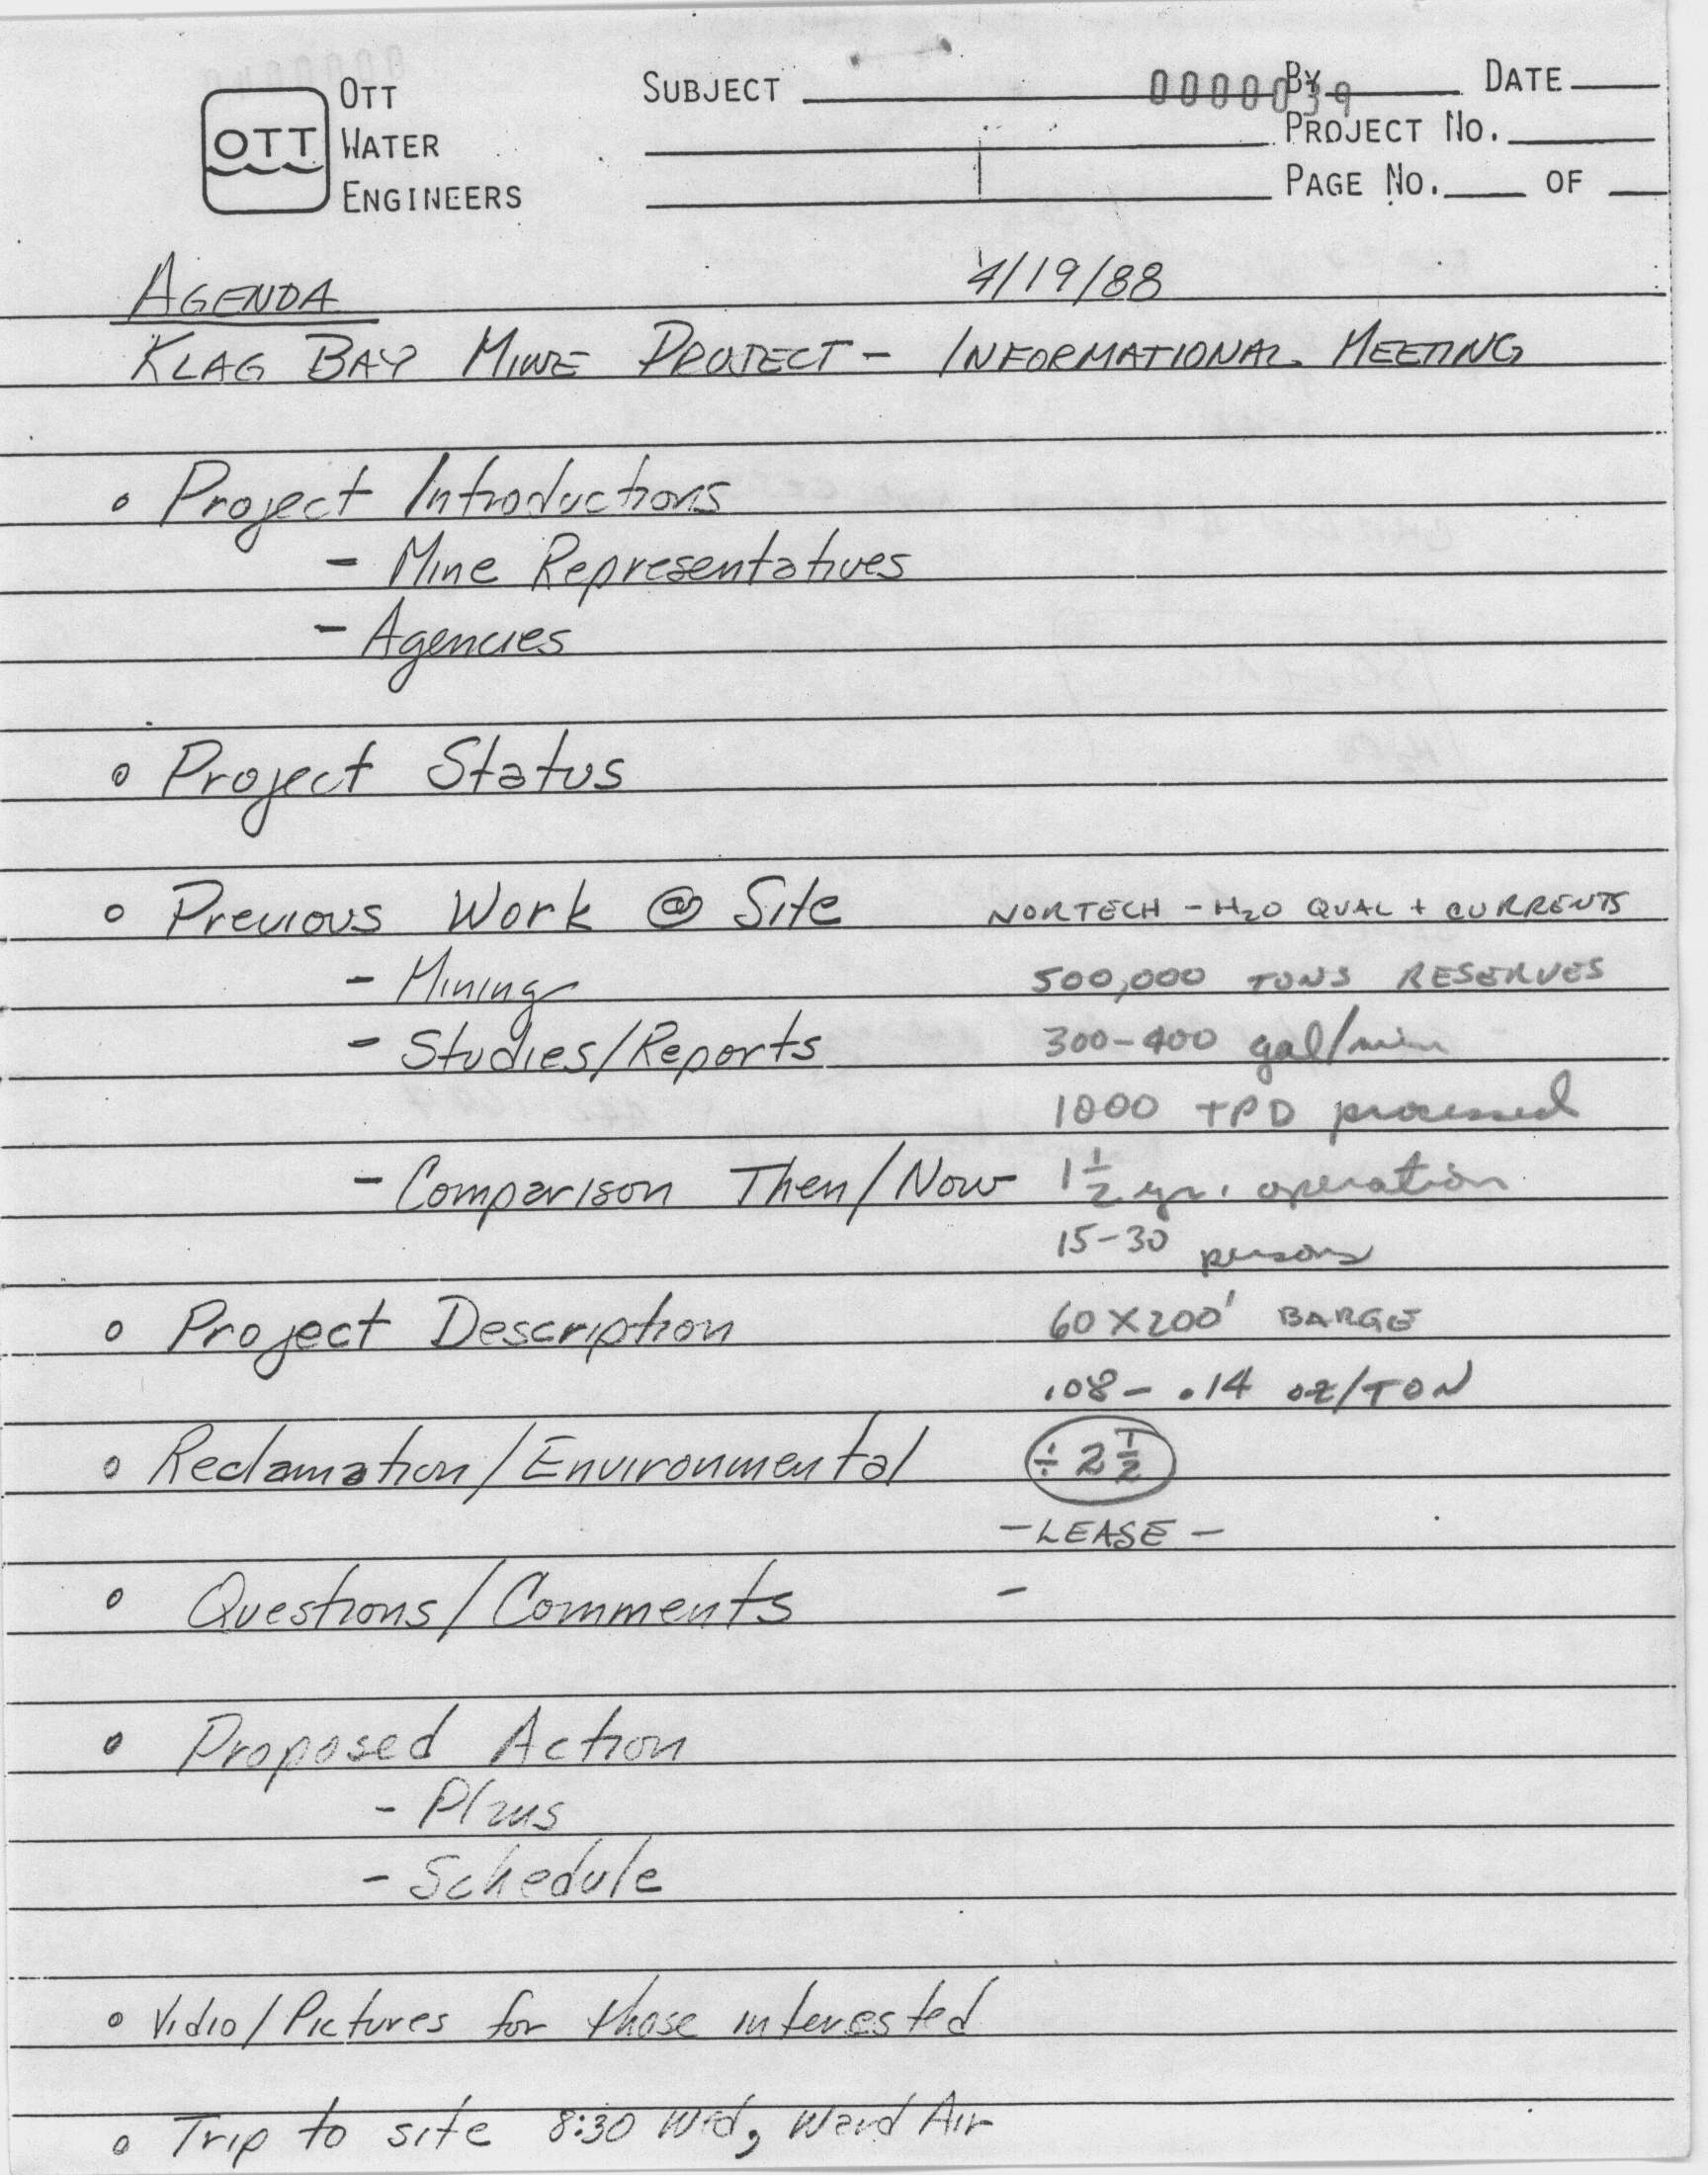 OTT WATER ENGINEERS
OTT
SUBJECT
0000039
BY DATE
PROJECT NO.
PAGE NO. OF
AGENDA 4/19/88
KLAG BAY MINE PROJECT - INFORMATIONAL MEETING
o Project Introductions
- Mine Representatives
- Agencies
o Project Status
o Previous Work @ Site NORTECH - H2O QUAL + CURRENTS
- Mining 500,000 TONS RESERVES
- Studies/Reports 300-400 gal/min
1000 TPD processed
- Comparison Then/Now 1 1/2 yr. operation
15-30 persons
o Project Description 60X200' BARGE
.08 - .14 oz/TON
o Reclamation/Environmental ÷ 2 1/2
- LEASE -
o Questions/Comments -
o Proposed Action
- Plans
- Schedule
o Vidio/Pictures for those interested
o Trip to site 8:30 Wed, Ward Air